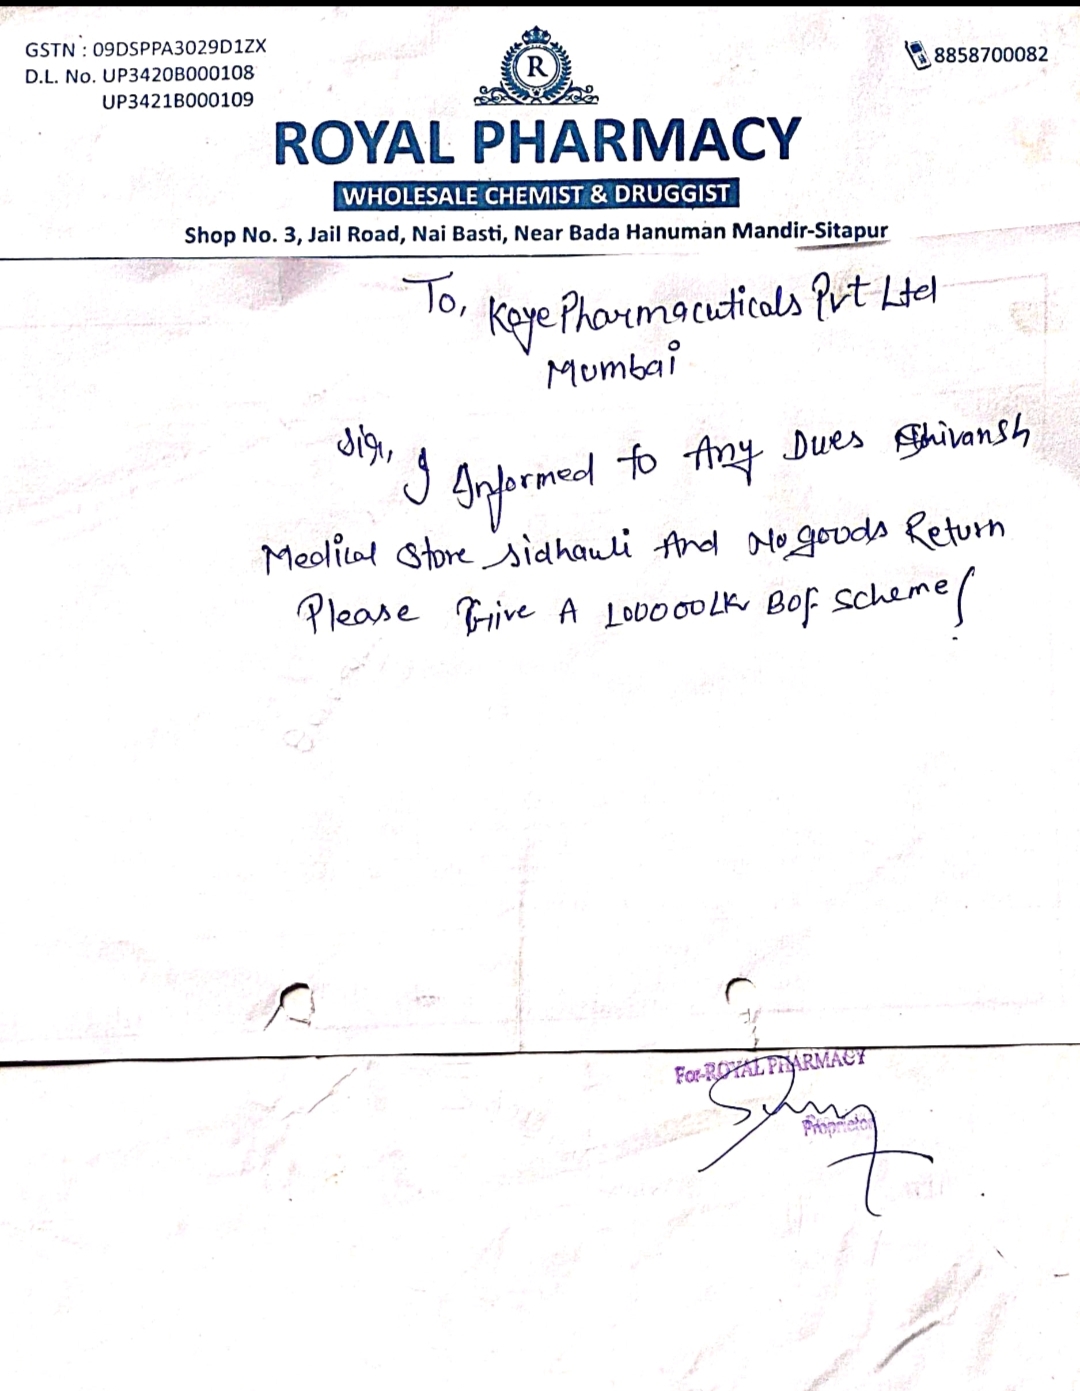 GSTN : 09DSPPA3029D1ZX
D.L. No. UP3420B000108
UP3421B000109
8858700082
R
ROYAL PHARMACY
WHOLESALE CHEMIST & DRUGGIST
Shop No. 3, Jail Road, Nai Basti, Near Bada Hanuman Mandir-Sitapur
To, Kaye Pharmacuticals Pvt Ltd
Mumbai
Sir,
I Informed to Any Dues Shivansh
Medical Store Sidhauli And No goods Return
Please Give A 100000LK BOF Scheme
For-ROYAL PHARMACY
Proprietor